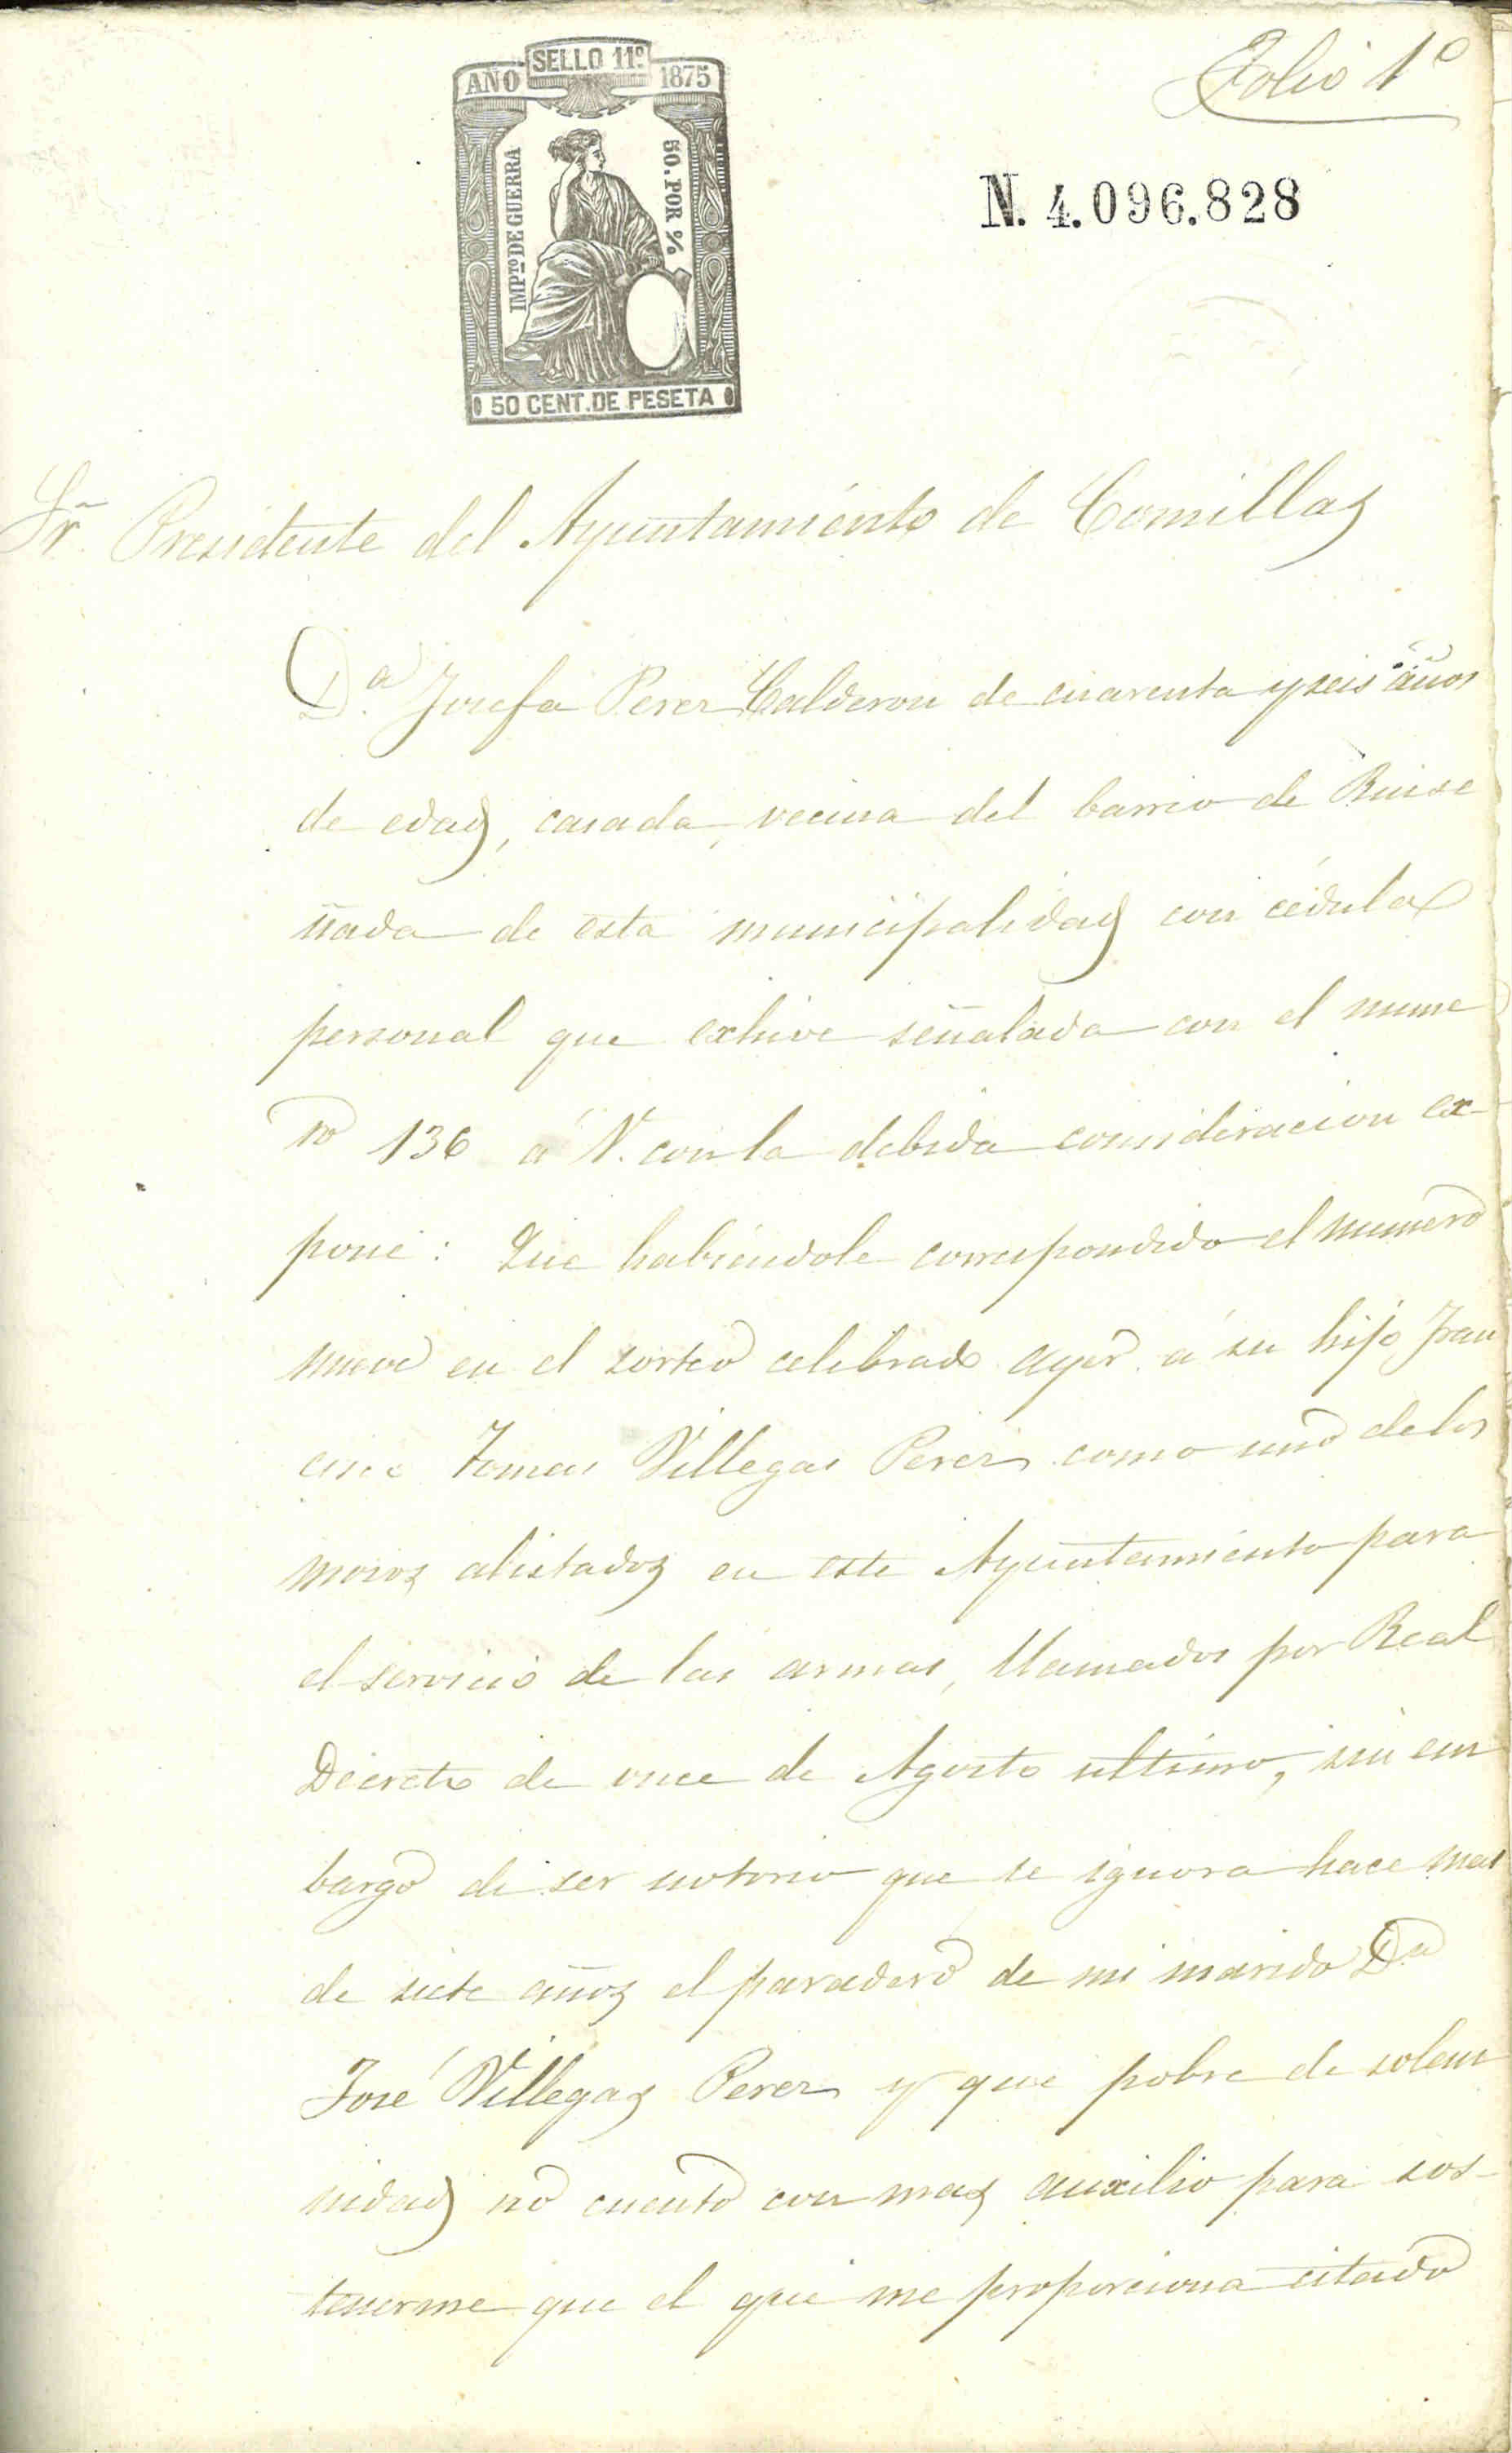 Folio 1º
AÑO SELLO 11º 1875
IMPTO DE GUERRA
50. POR %
50 CENT. DE PESETA
N. 4.096.828
Sr. Presidente del Ayuntamiento de Comillas
Dª Josefa Perez Calderon de cuarenta y seis años
de edad, casada, vecina del barrio de Ruise
ñada de esta municipalidad con cédula
personal que exhive señalada con el nume
ro 136 á V. con la debida consideracion ex-
pone: Que habiendole correspondido el numero
nueve en el sorteo celebrado ayer á su hijo Fran
cisco Tomas Villegas Perez como uno de los
mozos alistados en este Ayuntamiento para
el servicio de las armas, llamados por Real
Decreto de once de Agosto ultimo, sin em
bargo de ser notorio que se ignora hace mas
de siete años el paradero de mi marido Dn
José Villegas Perez y que pobre de solem
nidad no cuento con mas auxilio para sos-
tenerme que el que me proporciona citado